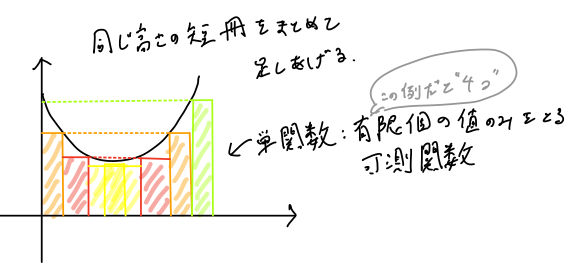 同じ高さの短冊をまとめて
足しあげる.
この例だで"4つ"
単関数：有限個の値のみをとる
可測関数